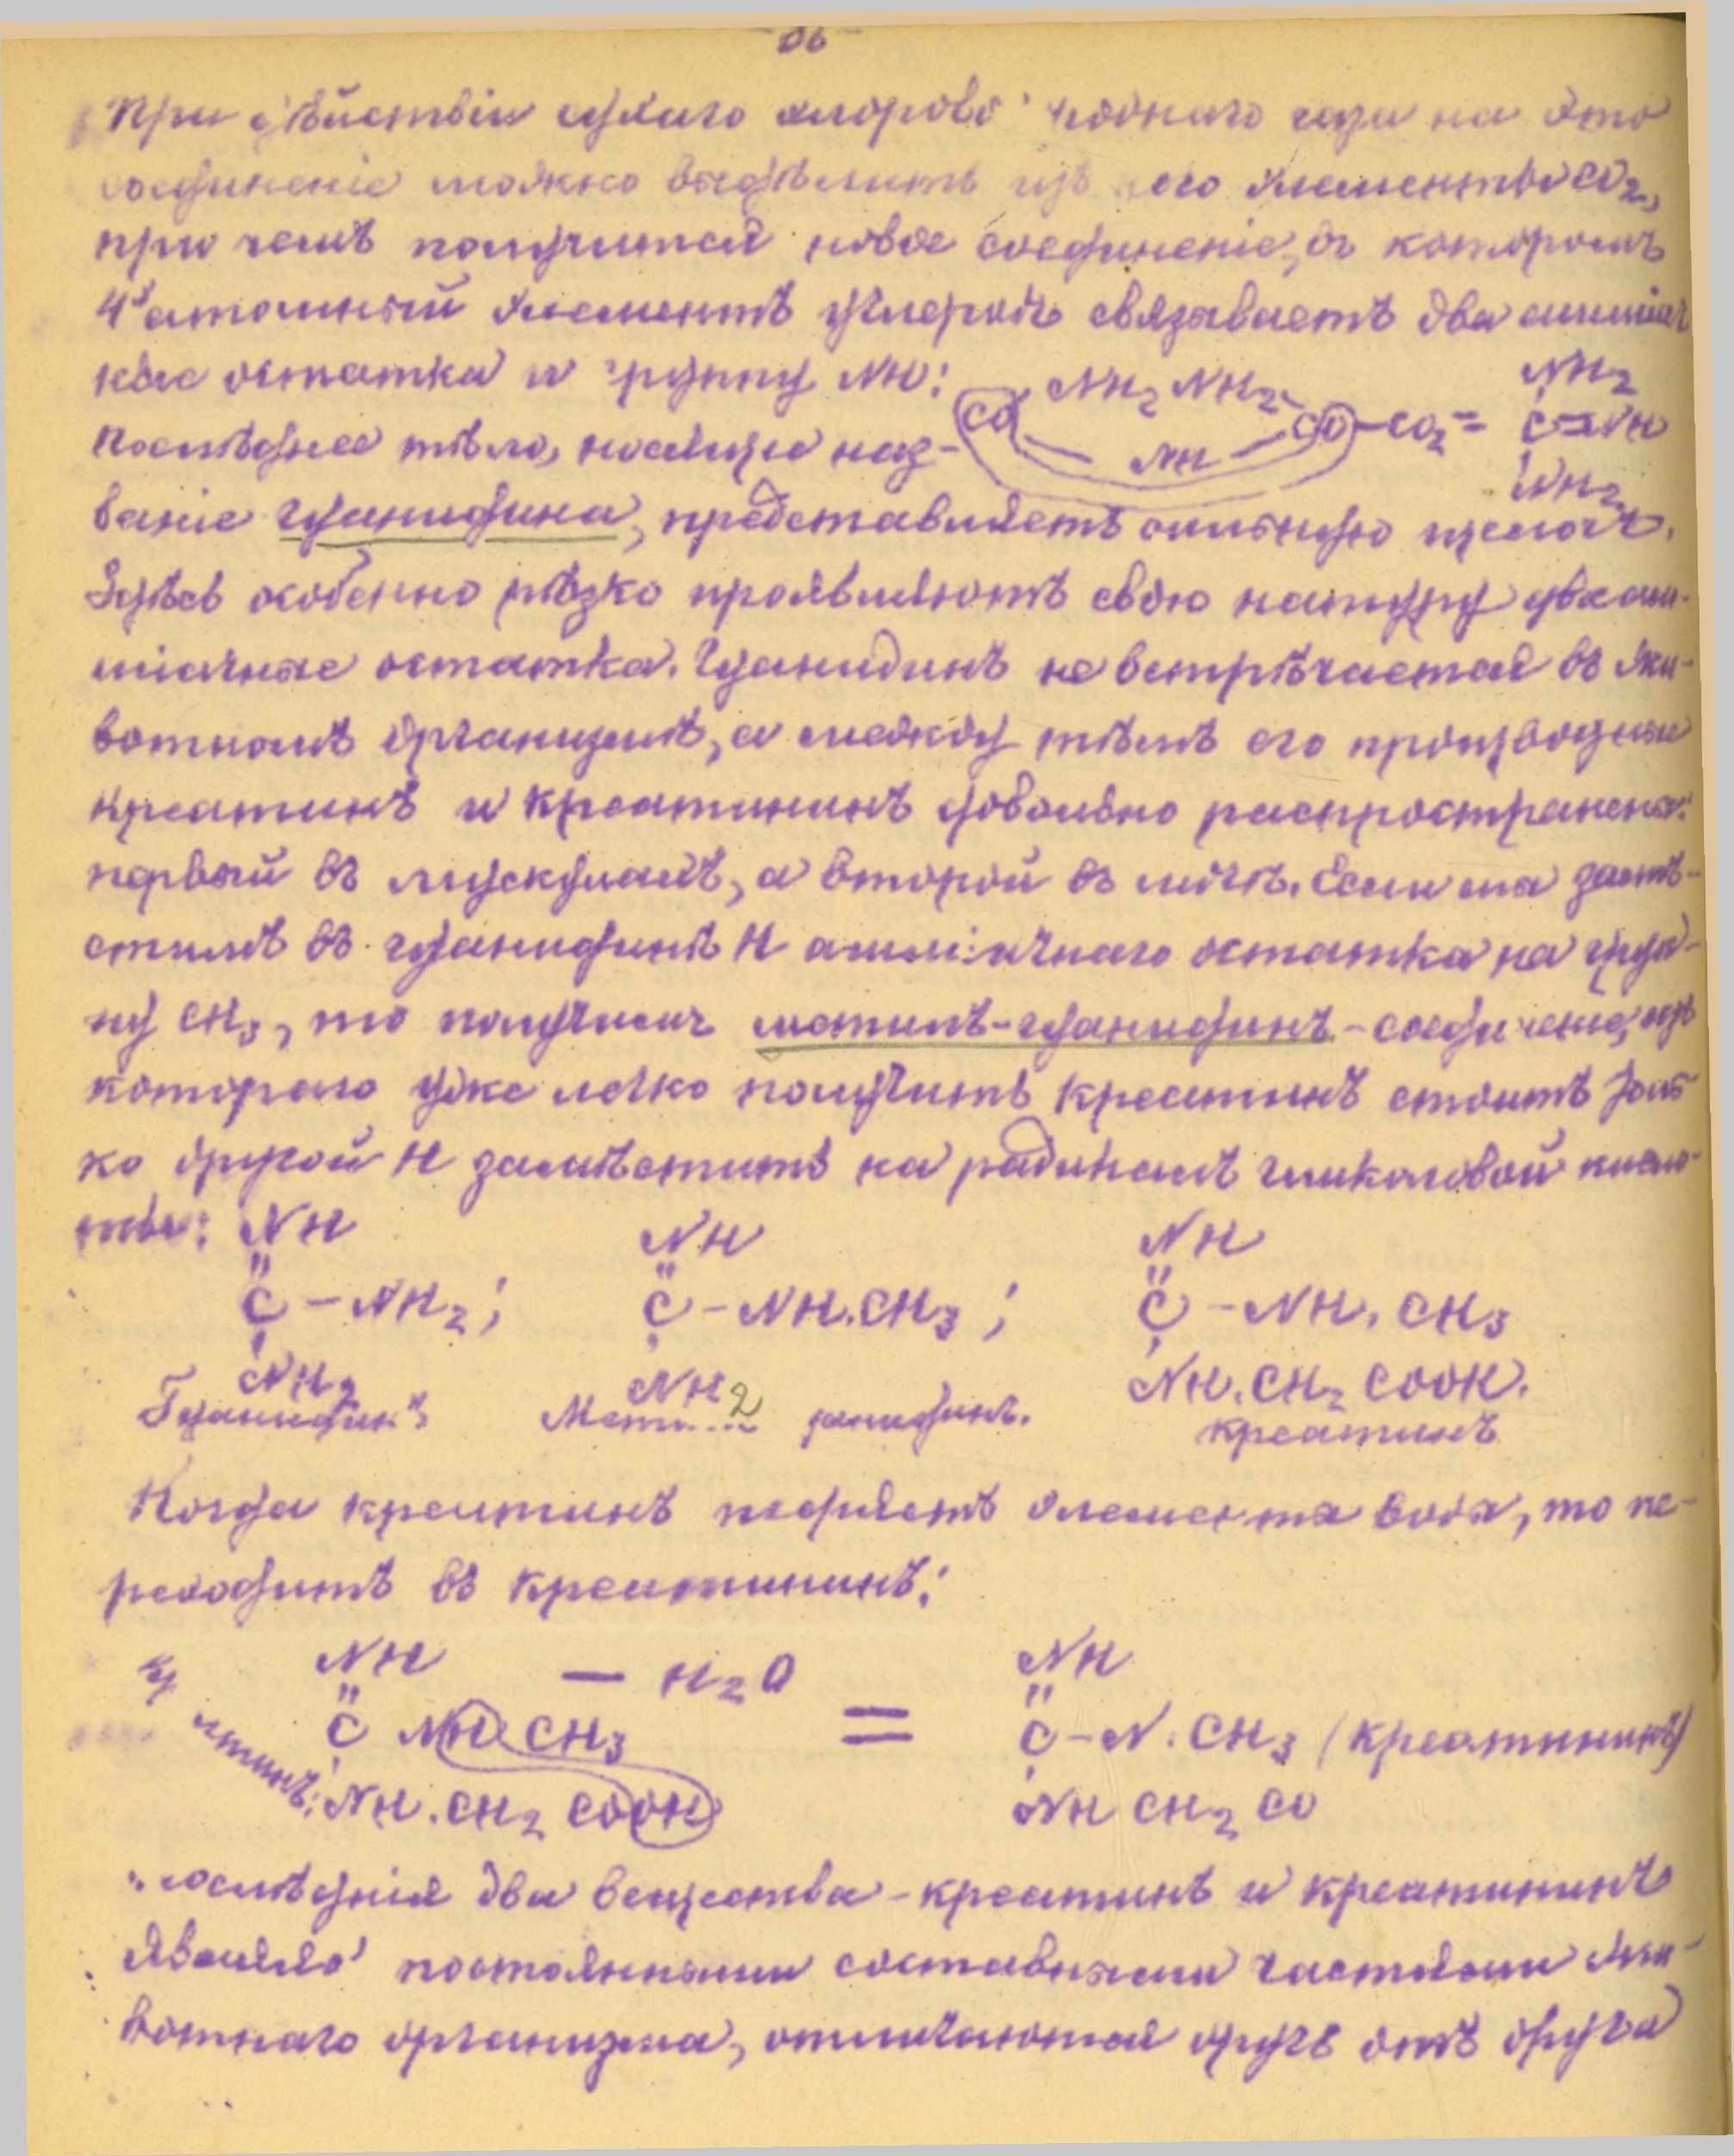 При дѣйствіи сухаго хлорово наго газа на это
соединеніе можно выдѣлить изъ него элементы CO2,
при чемъ получится новое соединеніе, въ которомъ
4хатомный элементъ углеродъ связываетъ два амміач
ные остатка и группу NH: CO NH2 NH2 CO – CO2 = NH2
NH C=NH
Послѣднее тѣло, носящее наз- NH2
ваніе гуанидина, представляетъ сильную щелочь.
Здѣсь особенно рѣзко проявляютъ свою натуру два ам-
міачные остатка. Гуанидинъ не встрѣчается въ жи-
вотномъ организмѣ, а между тѣмъ его производные
креатинъ и креатининъ довольно распространены:
первый въ мускулахъ, а второй въ мочѣ. Если мы замѣ-
стимъ въ гуанидинѣ H амміачнаго остатка на груп-
пу CH3, то получимъ метилъ-гуанидинъ - соединеніе, изъ
котораго уже легко получить креатинъ стоитъ толь
ко другой H замѣстить на радикалъ гликоловой кисло-
ты: NH NH NH
C – NH2; C – NH.CH3; C – NH.CH3
NH2 NH2 NH.CH2 COOH.
Гуанидинъ Мети гуанидинъ. креатинъ
Когда креатинъ теряетъ элементы воды, то пе-
реходитъ въ креатининъ:
NH – H2O NH
C NH CH3 = C – N.CH3 (креатининъ)
NH.CH2 COOH NH CH2 CO
послѣднія два вещества - креатинъ и креатининъ
постоянными составными частями жи-
вотнаго организма, отличаются другъ отъ друга